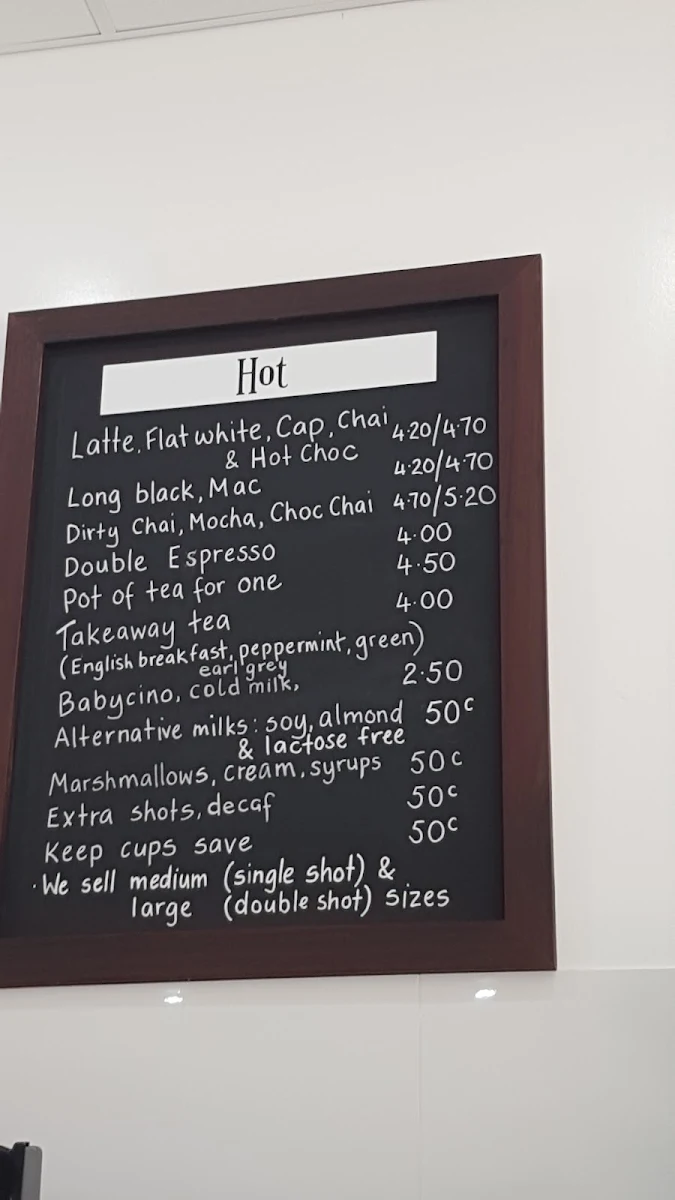 Hot
Latte, Flat white, Cap, Chai 4·20/4·70
& Hot Choc
Long black, Mac 4·20/4·70
Dirty Chai, Mocha, Choc Chai 4·70/5·20
Double Espresso 4·00
Pot of tea for one 4·50
Takeaway tea 4·00
(English breakfast, peppermint, green)
earl grey
Babycino, cold milk, 2·50
Alternative milks: soy, almond 50c
& lactose free
Marshmallows, cream, syrups 50c
Extra shots, decaf 50c
Keep cups save 50c
·We sell medium (single shot) &
large (double shot) sizes